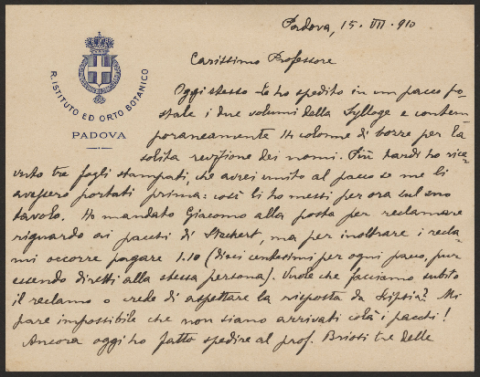 Padova, 15. VII. 910
R. ISTITUTO ED ORTO BOTANICO
PADOVA
Carissimo Professore
Oggi stesso Le ho spedito in un pacco po-
stale i due volumi della Sylloge e contem-
poraneamente colonne di borre per la
solita revisione dei nomi. Più tardi ho rice-
vuto tre fogli stampati, che avrei unito al pacco se me li
avessero portati prima: così li ho messi per ora sul suo
tavolo. Ho mandato Giacomo alla posta per reclamare
riguardo ai pacchi di Steckert, ma per inoltrare i recla-
mi occorre pagare 1.10 (dieci centesimi per ogni pacco, pur
essendo diretti alla stessa persona). Vuole che facciamo subito
il reclamo o crede di aspettare la risposta da Lipsia? Mi
pare impossibile che non siano arrivati colà i pacchi!
Ancora oggi ho fatto spedire al prof. Briosi tre delle